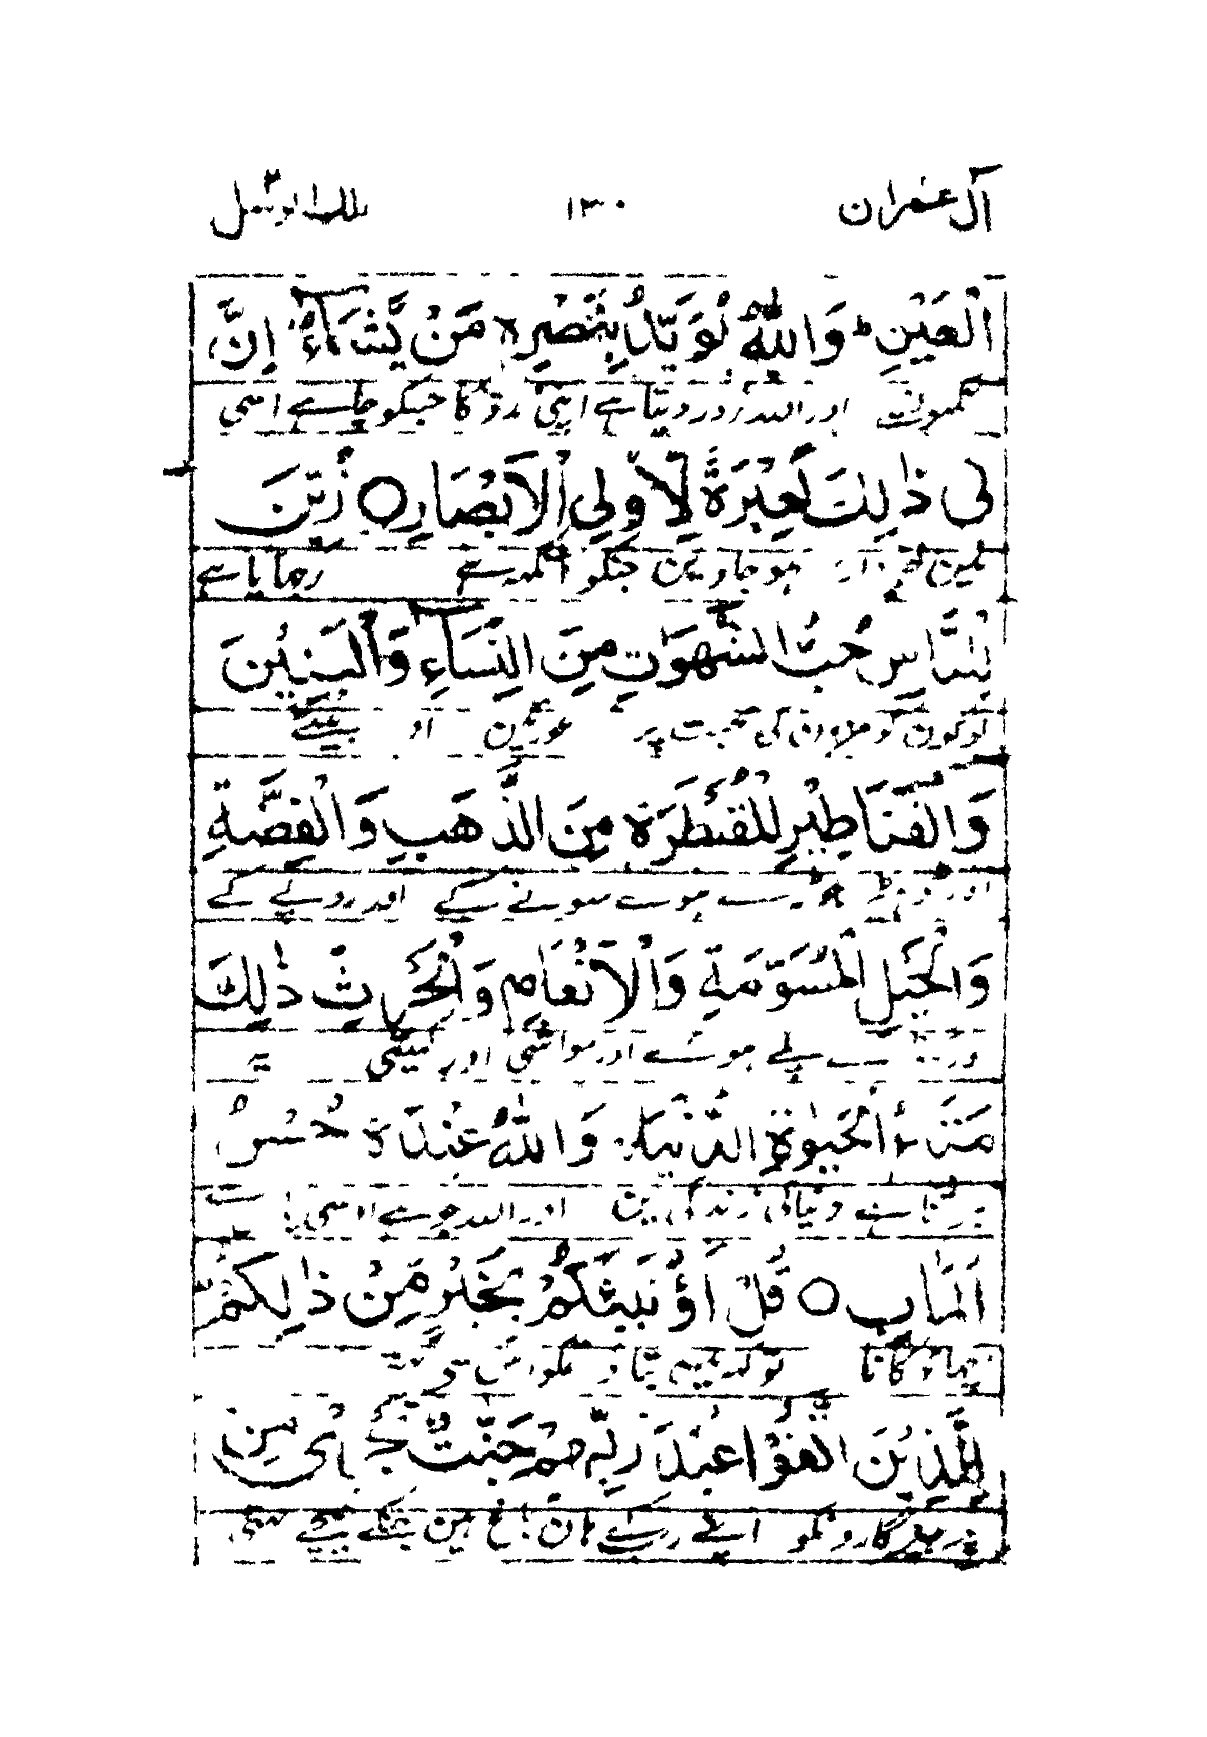 آل عمران ١٣٠ تلك الرسل ٣
الْعَيْنِ ط وَاللّٰهُ يُؤَيِّدُ بِنَصْرِهٖ مَنْ يَّشَآءُ اِنَّ
اور الله زور دیتا ہے اپنی مدد کا جسکو چاہے اسی
فِى ذٰلِكَ لَعِبْرَةً لِّاُولِى الْاَبْصَارِ ○ زُيِّنَ
ہو جاوین جنکو آنکھ ہے رجھایا ہے
لِلنَّاسِ حُبُّ الشَّهَوٰتِ مِنَ النِّسَآءِ وَالْبَنِيْنَ
لوگون کو مزون کی محبت پر عورتین او بیٹے
وَالْقَنَاطِيْرِ الْمُقَنْطَرَةِ مِنَ الذَّهَبِ وَالْفِضَّةِ
اور ہوے سونے کے اور روپے کے
وَالْخَيْلِ الْمُسَوَّمَةِ وَالْاَنْعَامِ وَالْحَرْثِ ذٰلِكَ
پلے ہوئے اور مواشی اور کھیتی یہ
مَتَاعُ الْحَيٰوةِ الدُّنْيَا وَاللّٰهُ عِنْدَهٗ حُسْنُ
برتنا ہے دنیا کی زندگی مین اور الله جو ہے اوسی
الْمَاٰبِ ○ قُلْ اَؤُنَبِّئُكُمْ بِخَيْرٍ مِّنْ ذٰلِكُمْ
اچھا ٹھکانا تو کہہ مین بتاؤن تمکو اس سے
لِلَّذِيْنَ اتَّقَوْا عِنْدَ رَبِّهِمْ جَنّٰتٌ تَجْرِىْ مِنْ
پرہیزگارونکو اپنے رب کے ہان باغ ہین جنکے نیچے بہتی